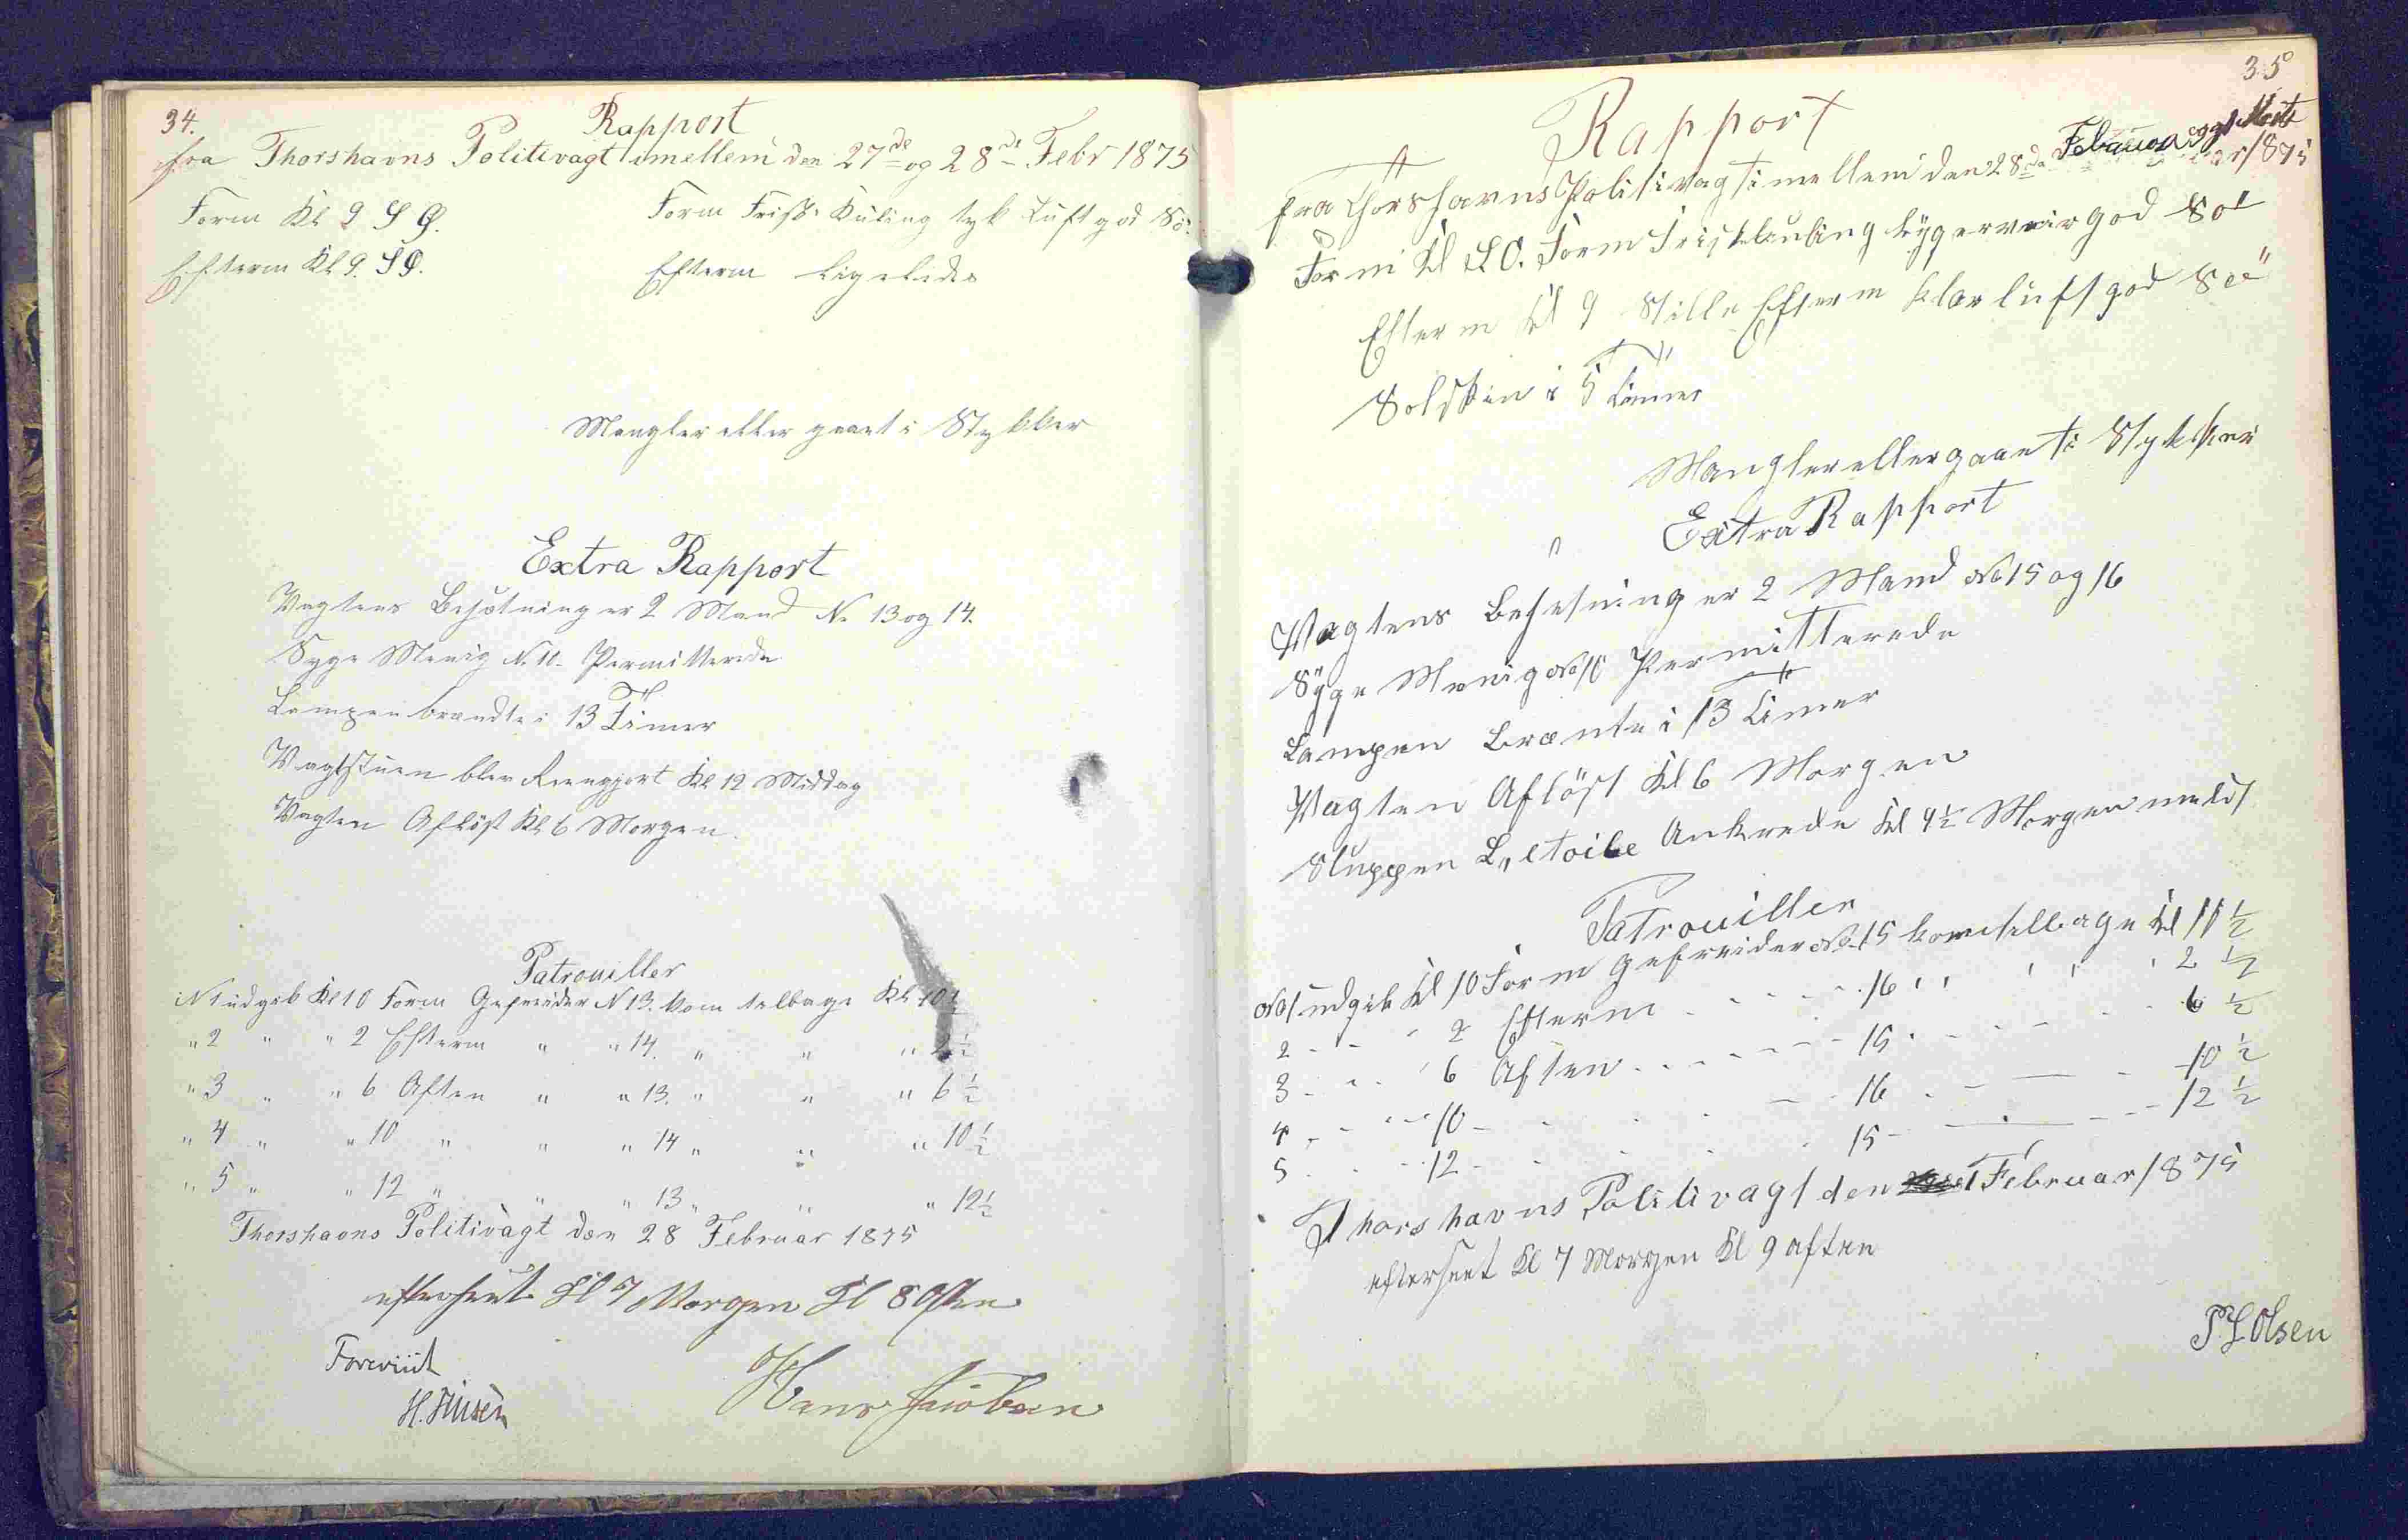 34.
Rapport
fra Thorshavns Politivagt imellem den 27de og 28de Febr 1875
Form Kl 9 S Ø. Form Frisk Kuling tyk Luft god Sö.
Efterm Kl 9. SØ. Efterm ligeledes
Mangler eller gaaet i Stykker
Extra Rapport
Vagtens Besætning er 2 Mand No 13 og 14.
Syge Menig No 10. Permitterede
Lampen brændte i 13 Timer
Vagtstuen blev Reengjort Kl 12 Middag
Vagten Aflöst Kl 6 Morgen.
Patrouiller
N 1 udgik Kl 10 Form Gefreider N 13. kom telbage Kl 10½
" 2 " " 2 Efterm " " 14. " " " 2½
" 3 " " 6 Aften " " 13. " " " 6½
" 4 " " 10 " " " 14 " " " 10½
" 5 " " 12 " " " 13 " " " 12½
Thorshavns Politivagt den 28 Februar 1875
efterseet Kl 7 Morgen Kl 8 Aften
Foreviist
Hans Jacobsen
35
Rapport
fra Thorshavns Politivagt imellem den 28de Februar og 1st Marts 1875
Form Kl SO. Form Frisk kuling tyger veir god Soe
Efterm Kl 9 Stille Efterm klar luft god Soe
Solskin i 5 Timer
Mangler eller gaaet i Stykker
Extra Rapport
Vagtens besetning er 2 Mand No 15 og 16
Syge Menig No 10 Permitterede
Lampen brænte i 13 Timer
Vagten Aflöst Kl 6 Morgen
Sluppen L,etoile Ankrede Kl 9½ Morgen meldt
Patrouiller
No 1 udgik Kl 10 Form Gefreider No 15 kom telbage Kl 11½
2 - - - 2 Efterm - - - - 16 " " " " " 2½
3 - - - 6 Aften - - - - 15 - - - - 6½
4 - - - 10 - - - - 16 - - - 10½
5 - - - 12 - - - - 15 - - - 12½
Thorshavns Politivagt den Februar 1875
efterseet Kl 7 Morgen Kl 9 aften
P. J. Olsen